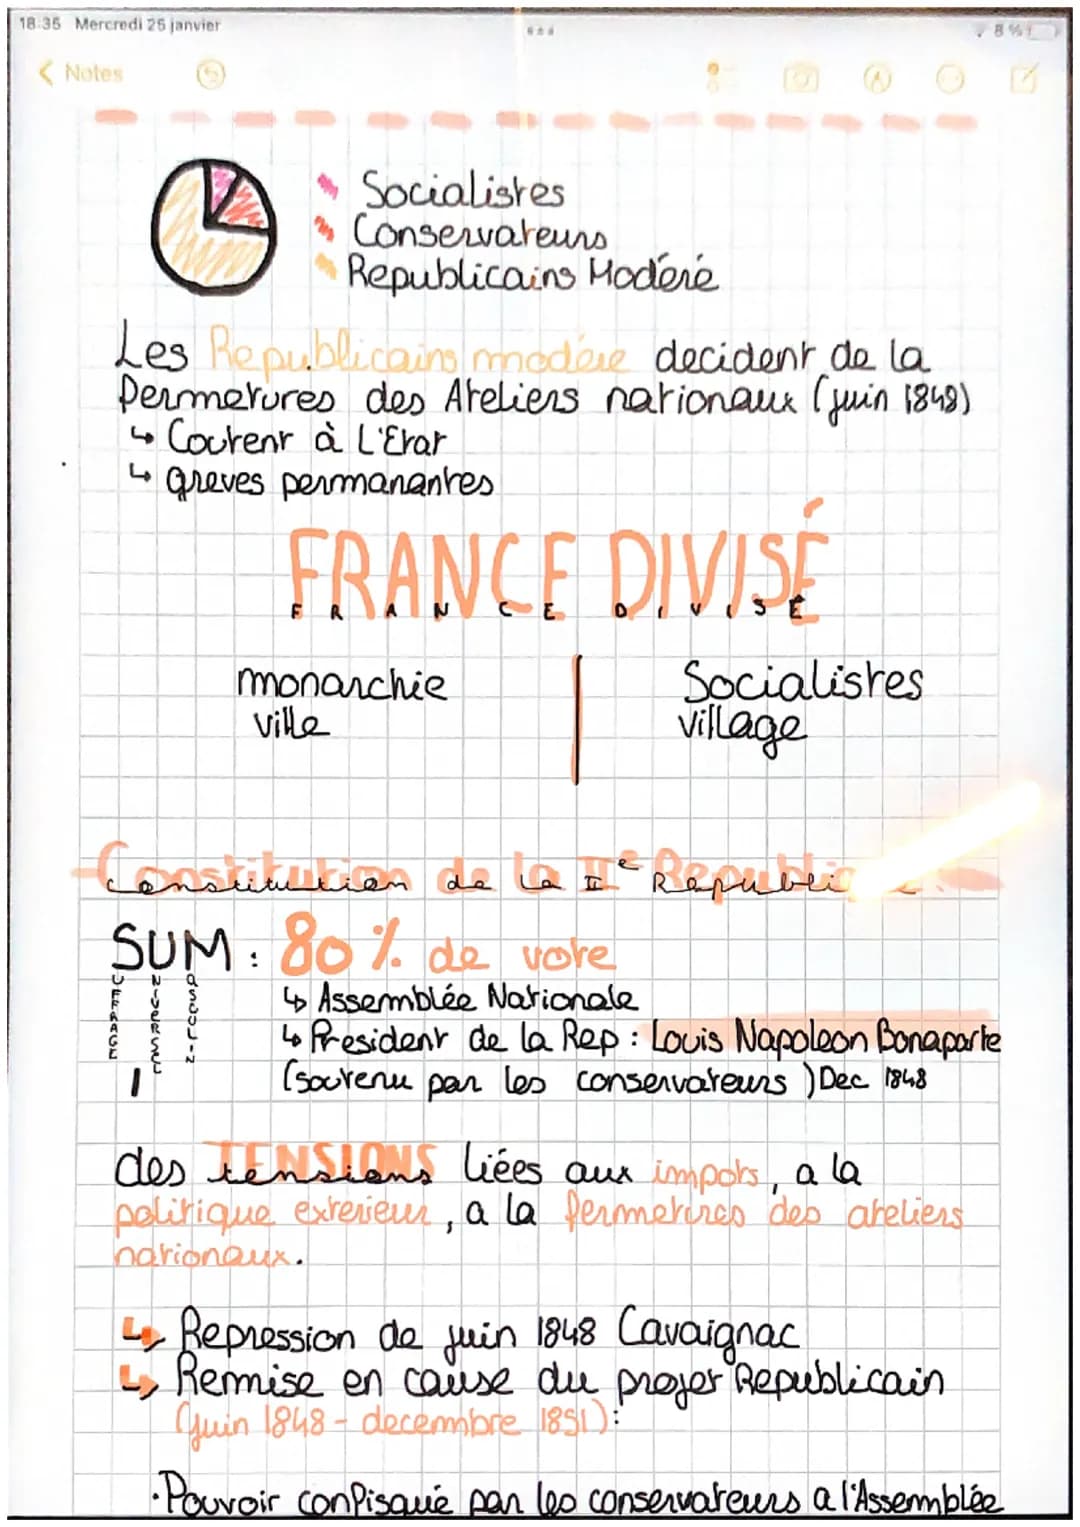 18:35 Mercredi 25 janvier
8 %
Notes
Socialistes
Conservateurs
Republicains Modéré
Les Republicains modéré decident de la
Fermetures des Ateliers nationaux (juin 1848)
↳ Coutent à L'Etat
↳ greves permanantes
FRANCE DIVISÉ
FRANCE DIVISÉ
monarchie
ville
Socialistes
village
Constitution de la IIe Republique
SUM : 80 % de vote
UFFRAGE
NIVERSEL
ASCULIN
↳ Assemblée Nationale
↳ President de la Rep : Louis Napoleon Bonaparte
(soutenu par les conservateurs) Dec 1848
des TENSIONS tensions liées aux impots, a la
politique exterieur, a la fermetires des ateliers
nationaux.
↳ Repression de juin 1848 Cavaignac
↳ Remise en cause du projet Republicain
(juin 1848 - decembre 1851) :
· Pouvoir confisqué par les conservateurs a l'Assemblée